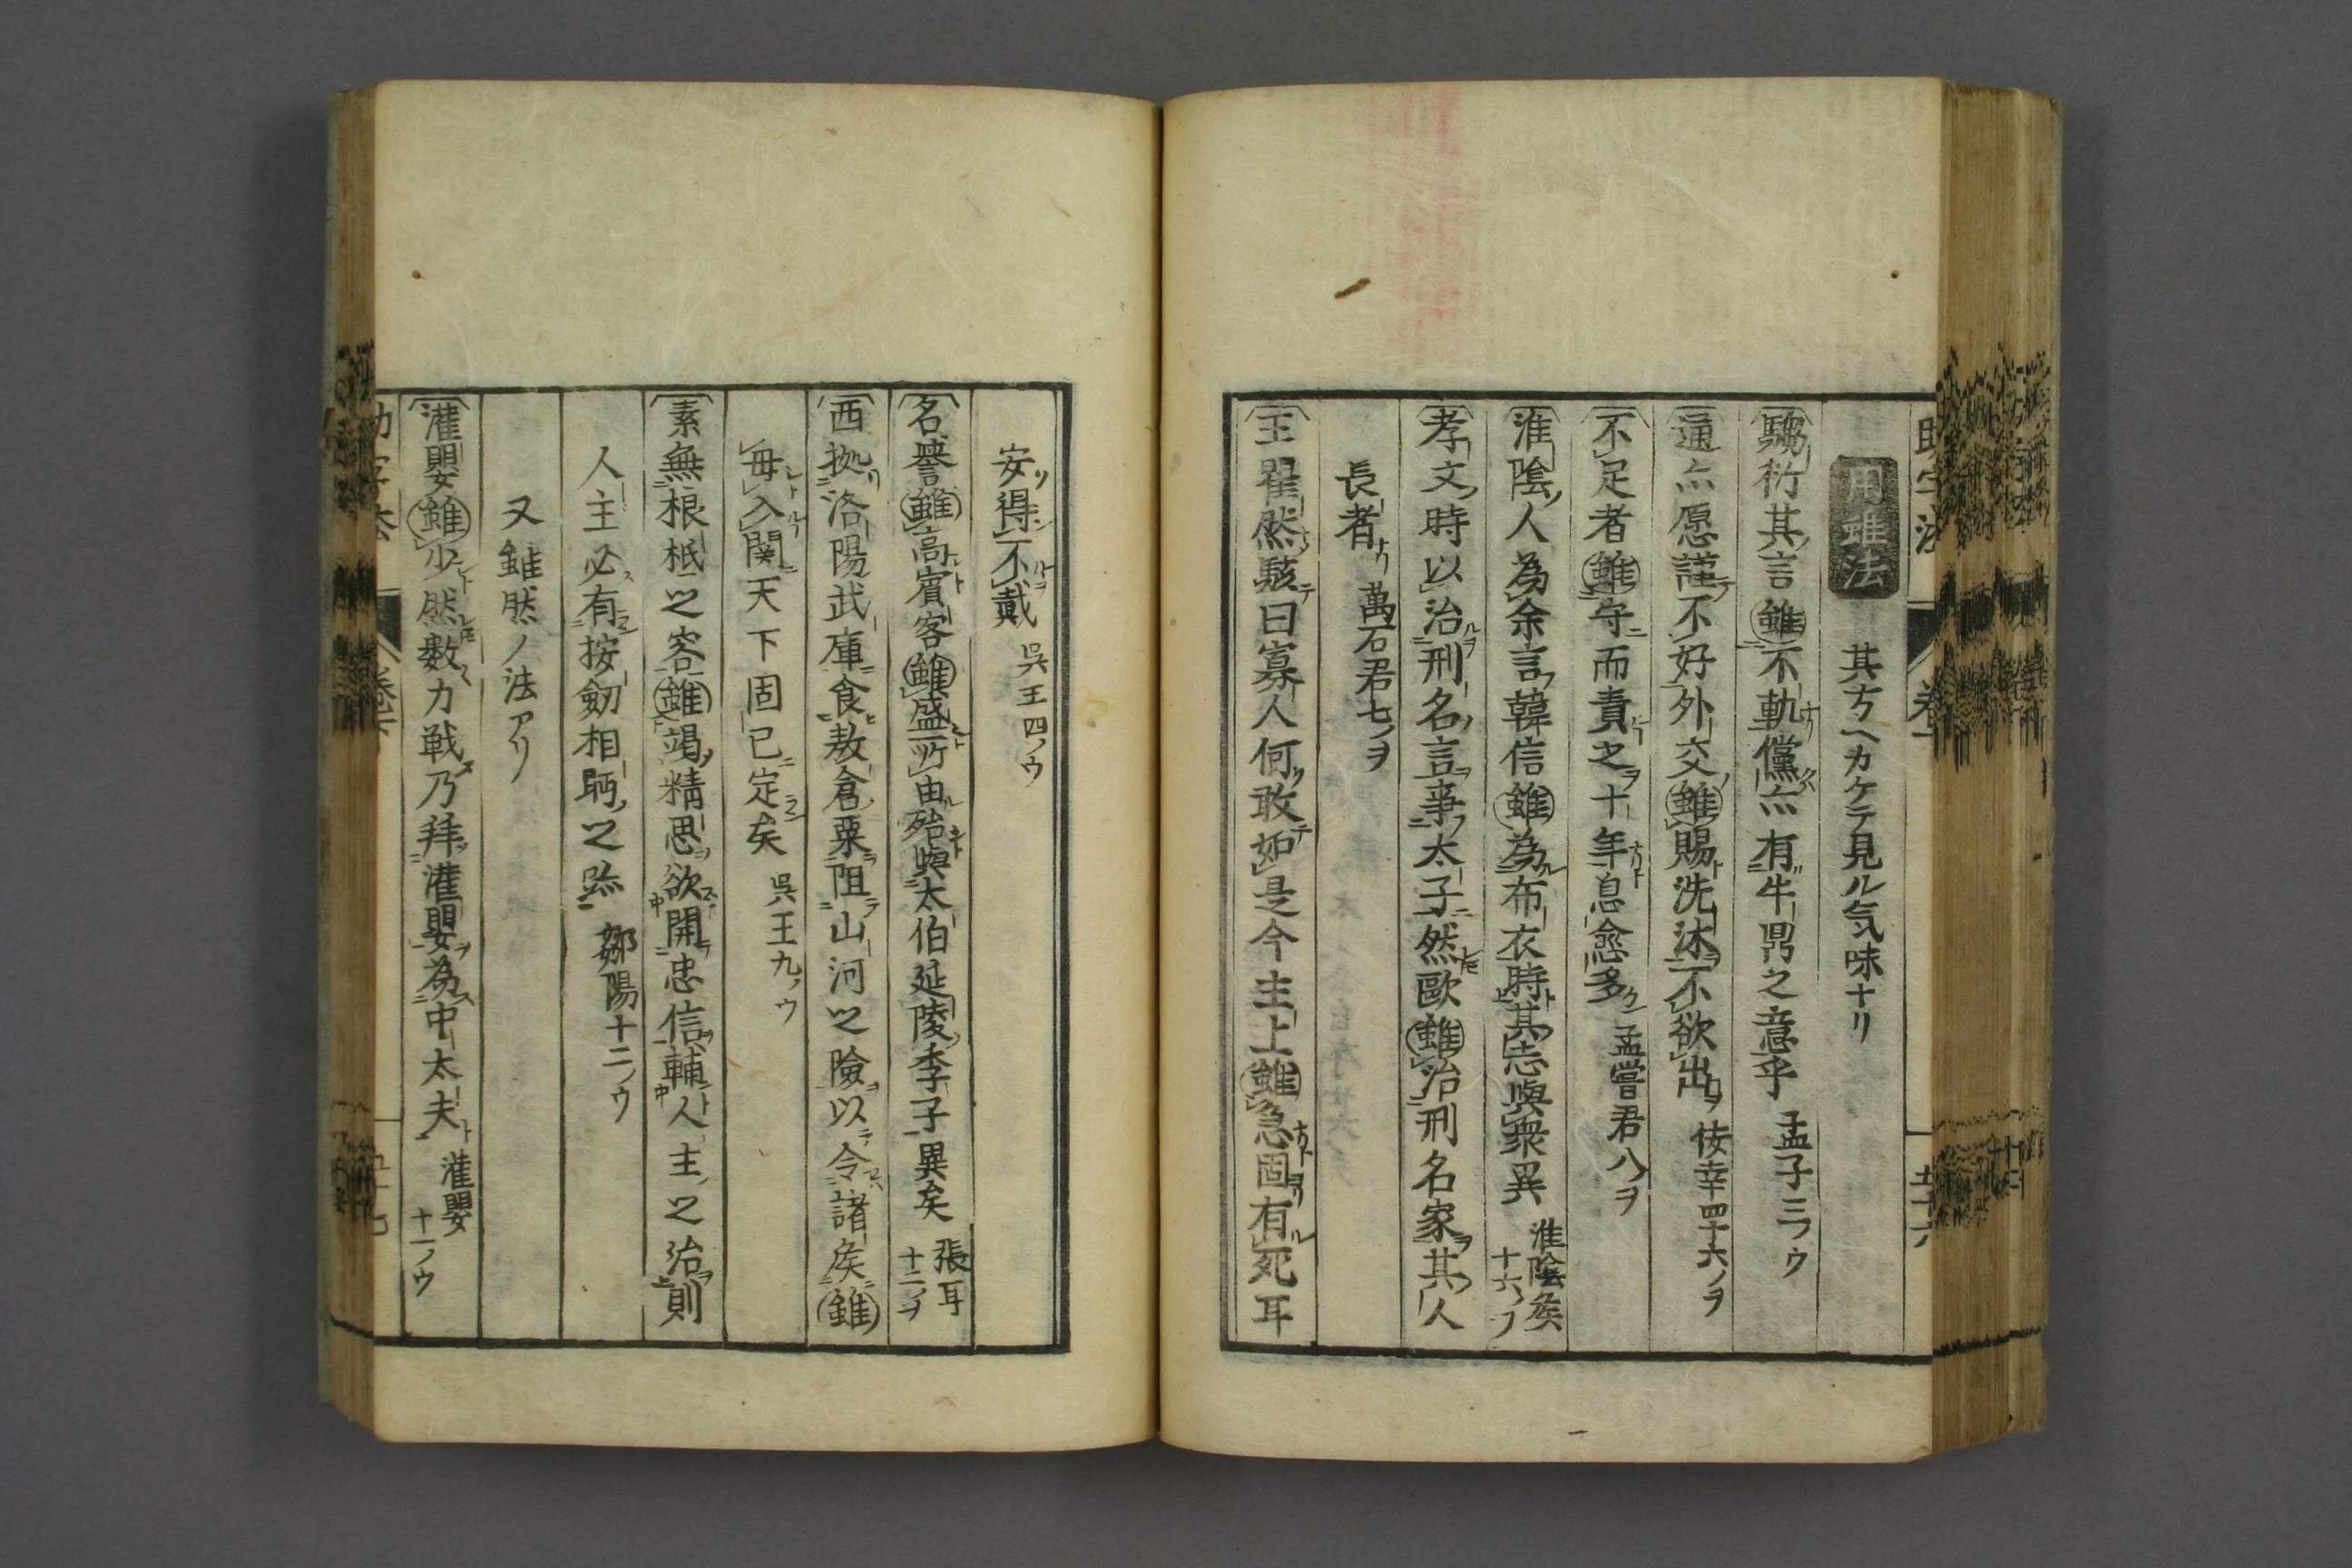 用雖法　其方ヘカケテ見ル気味ナリ
騶衍其言雖不軌儻亦有牛鼎之意乎　孟子三ノウ
通亦愿謹不好外交雖賜洗沐不欲出　佞幸四十六ノヲ
不足者雖守而責之十年息愈多　孟嘗君八ノヲ
淮陰人為余言韓信雖為布衣時其志與衆異　淮陰侯十六ノヲ
孝文時以治刑名言事太子然歐雖治刑名家其人
長者　萬石君七ノヲ
王瞿然駭曰寡人何敢如是今主上雖急固有死耳
安得不戴　呉王四ノウ
名譽雖高賓客雖盛所由殆與太伯延陵季子異矣　張耳十二ノヲ
西拠洛陽武庫食敖倉粟阻山河之險以令諸侯雖
毋入関天下固已定矣　呉王九ノウ
素無根柢之容雖竭精思欲開忠信輔人主之治則
人主必有按劒相眄之跡　鄒陽十二ノウ
又雖然ノ法アリ
灌嬰雖少然數力戦乃拝灌嬰為中太夫　灌嬰十一ノウ